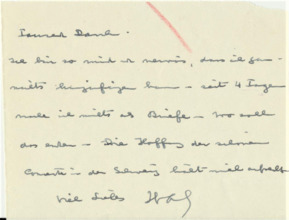 Tausend Dank.
Ich bin so müd u. nervös, dass ich gar
nichts hinzufügen kann – seit 4 Tagen
mache ich nichts als Briefe – wo soll
das enden – Die Hoffng der schönen
Concerte in der Schweiz hält mich aufrecht
Viel Liebes